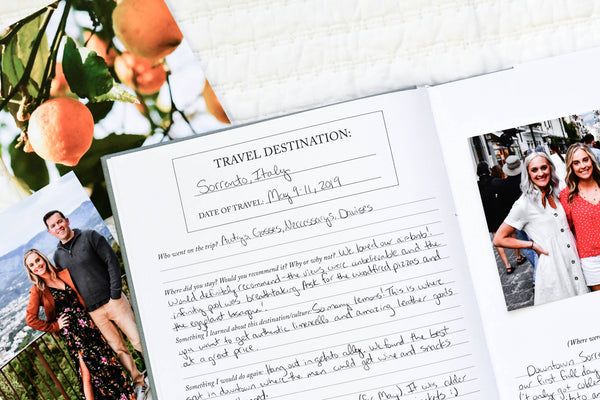 TRAVEL DESTINATION:
Sorrento, Italy
DATE OF TRAVEL: May 9-11, 2019
Who went on the trip?
Where did you stay? Would you recommend it? Why or why not? We loved our airbnb!
Would definitely recommend - the views were unbelievable and the
infinity pool was breathtaking. Ask for the woodfired pizzas and
the eggplant
Something I learned about this destination/culture: So many lemons! This is where
you want to get authentic limoncello and amazing leather goods
at a great price.
Something I would do again: Hang out in gelato alley, we found the best
spot in downtown where the men could get wine and snacks
May) It was colder
(Where were
Downtown Sorre
our first full day